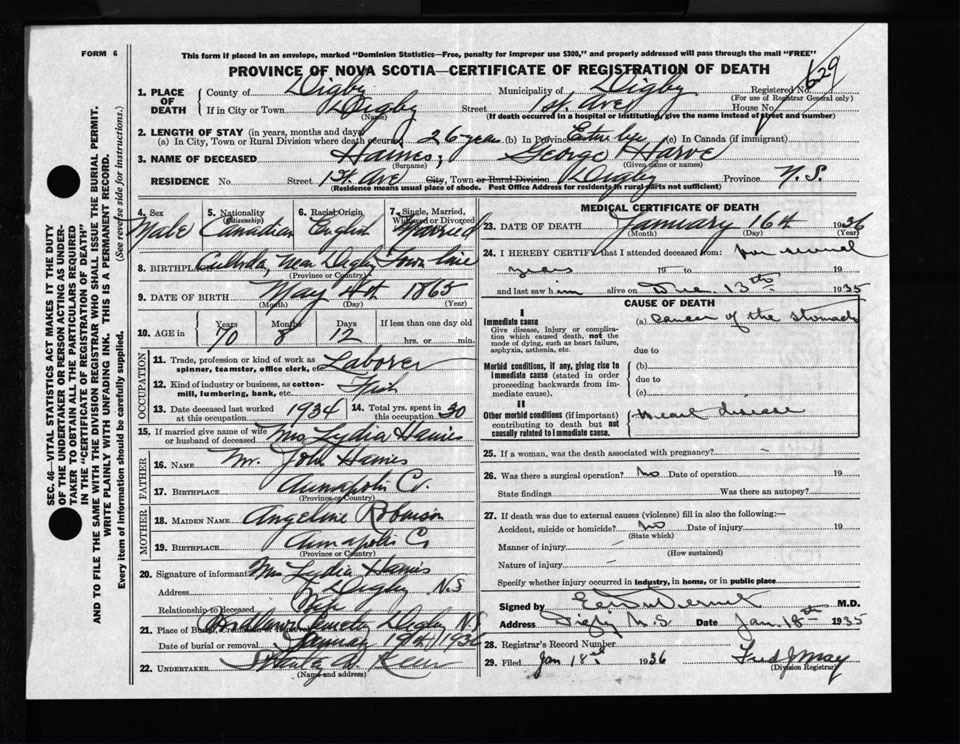 FORM 6
This form if placed in an envelope, marked "Dominion Statistics—Free, penalty for improper use $300," and properly addressed will pass through the mail "FREE"
PROVINCE OF NOVA SCOTIA—CERTIFICATE OF REGISTRATION OF DEATH
629
1. PLACE OF DEATH
County of Digby Municipality of Digby Registered No.
(For use of Registrar General only)
If in City or Town Digby Street 1st. Ave House No.
(Name) (If death occurred in a hospital or institution, give the name instead of street and number)
2. LENGTH OF STAY (in years, months and days)
(a) In City, Town or Rural Division where death occurred 26 years (b) In Province Entire life (c) In Canada (if immigrant)
3. NAME OF DECEASED Haines, George Harve
(Surname) (Given name or names)
RESIDENCE No. Street 1st. Ave City, Town or Rural Division Digby Province N.S.
(Residence means usual place of abode. Post Office Address for residents in rural parts not sufficient)
SEC. 46—VITAL STATISTICS ACT MAKES IT THE DUTY
OF THE UNDERTAKER OR PERSON ACTING AS UNDER-
TAKER TO OBTAIN ALL THE PARTICULARS REQUIRED
IN THE "CERTIFICATE OF REGISTRATION OF DEATH"
AND TO FILE THE SAME WITH THE DIVISION REGISTRAR WHO SHALL ISSUE THE BURIAL PERMIT.
WRITE PLAINLY WITH UNFADING INK. THIS IS A PERMANENT RECORD.
Every item of information should be carefully supplied. (See reverse side for instructions.)
4. Sex Male
5. Nationality (Citizenship) Canadian
6. Racial Origin English
7. Single, Married, Widowed or Divorced Married
8. BIRTHPLACE near Digby Town line
(Province or Country)
9. DATE OF BIRTH May 4th 1865
(Month) (Day) (Year)
10. AGE in Years Months Days If less than one day old
70 8 12 hrs. or min.
OCCUPATION
11. Trade, profession or kind of work as spinner, teamster, office clerk, etc. Laborer
12. Kind of industry or business, as cotton-mill, lumbering, bank, etc. Fish
13. Date deceased last worked at this occupation 1934
14. Total yrs. spent in this occupation 30
15. If married give name of wife or husband of deceased Mrs Lydia Haines
FATHER
16. NAME Mr. John Haines
17. BIRTHPLACE Annapolis Co.
(Province or Country)
MOTHER
18. MAIDEN NAME Angeline Robinson
19. BIRTHPLACE Annapolis Co
(Province or Country)
20. Signature of informant Mrs Lydia Haines
Address Digby N.S
Relationship to deceased Wife
21. Place of Burial, Cremation or Removal Cemetery Digby N.S
Date of burial or removal January 19th/1936
22. UNDERTAKER
(Name and address)
MEDICAL CERTIFICATE OF DEATH
23. DATE OF DEATH January 16th 1936
(Month) (Day) (Year)
24. I HEREBY CERTIFY that I attended deceased from: for several
years 19 to 19
and last saw him alive on Dec. 13th 1935
CAUSE OF DEATH
I
Immediate cause
Give disease, injury or complication which caused death, not the mode of dying, such as heart failure, asphyxia, asthenia, etc.
(a) Cancer of the stomach
due to
Morbid conditions, if any, giving rise to immediate cause (stated in order proceeding backwards from immediate cause).
(b)
due to
(c)
II
Other morbid conditions (if important) contributing to death but not causally related to immediate cause.
Heart disease
25. If a woman, was the death associated with pregnancy?
26. Was there a surgical operation? No Date of operation 19
State findings Was there an autopsy?
27. If death was due to external causes (violence) fill in also the following:—
Accident, suicide or homicide? No Date of injury 19
(State which)
Manner of injury
(How sustained)
Nature of injury
Specify whether injury occurred in industry, in home, or in public place
Signed by M.D.
Address Digby N.S. Date Jan. 18th 1935
28. Registrar's Record Number
29. Filed Jan 18th 1936 Fred J May
(Division Registrar)